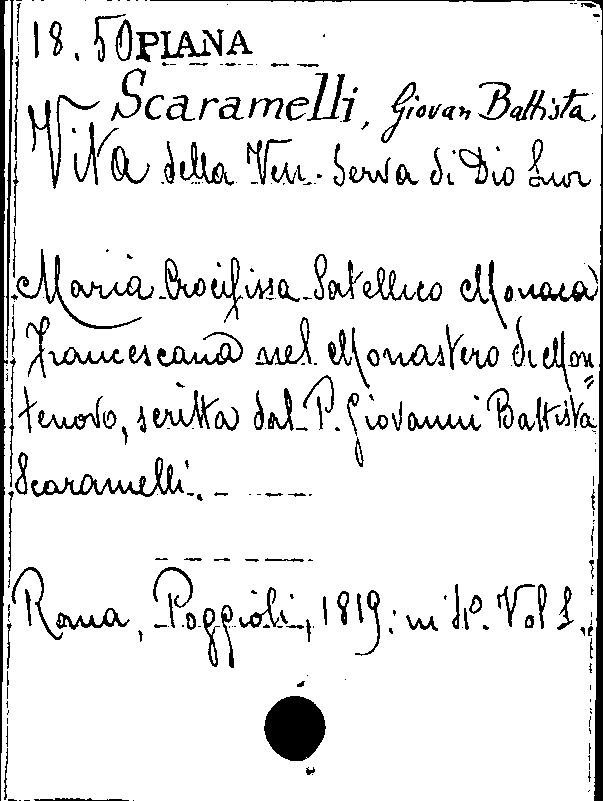 18. 50 PIANA
Scaramelli, Giovan Battista
Vita della Ven. Serva di Dio Suor
Maria Crocifissa Satellico Monaca
Francescana nel Monastero di Mon=
tenovo, scritta dal P. Giovanni Battista
Scaramelli.
Roma, Poggioli, 1819: in 4º. Vol 1.